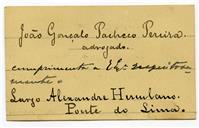 João Gonçalo Pacheco Pereira
advogado.
cumprimenta a V. Ex.ª respeitosa-
mente.
Largo Alexandre Herculano.
Ponte do Lima.